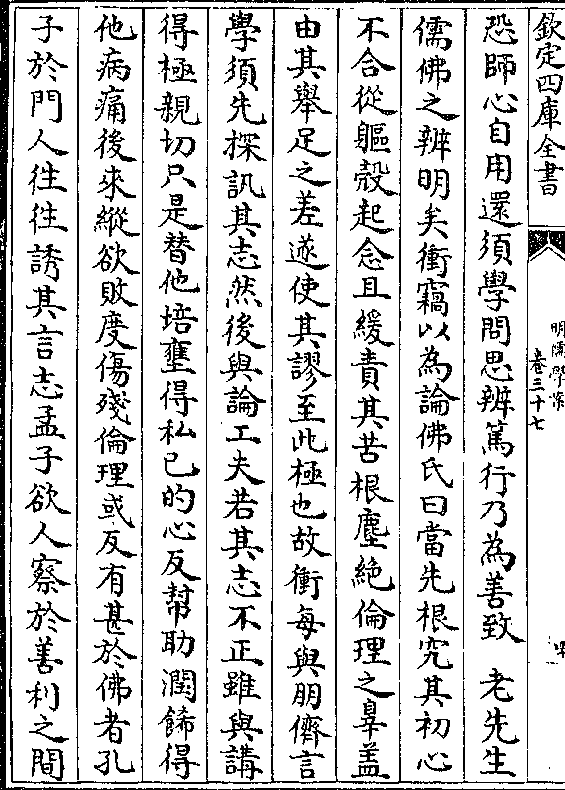 欽定四庫全書
明儒學案
卷三十七
恐師心自用還須學問思辨篤行乃為善致　老先生
儒佛之辨明矣衝竊以為論佛氏曰當先根究其初心
不合從軀殻起念且緩責其苦根塵絶倫理之辠盖
由其舉足之差遂使其謬至此極也故衝每與朋儕言
學須先探訊其志然後與論工夫若其志不正雖與講
得極親切只是替他培壅得私已的心反幫助潤餙得
他病痛後來縱欲敗度傷殘倫理或反有甚於佛者孔
子於門人徃徃誘其言志孟子欲人察於善利之間